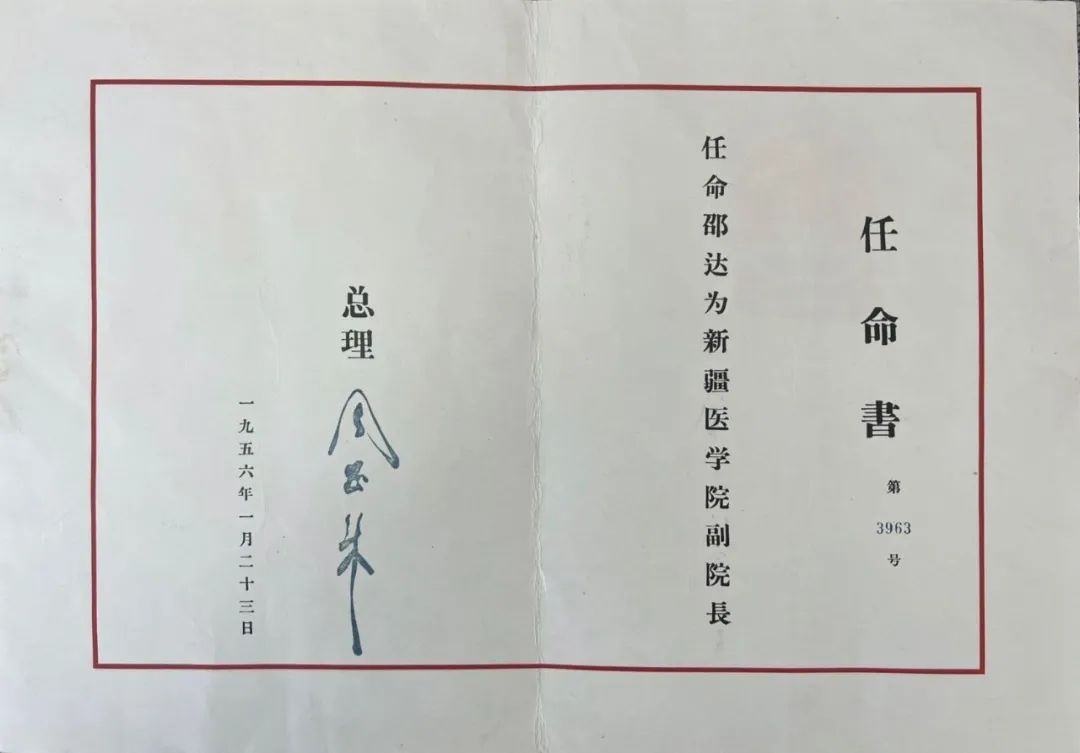 任命書
第
3963
号
任命邵达为新疆医学院副院長
总理
周恩来
一九五六年一月二十三日